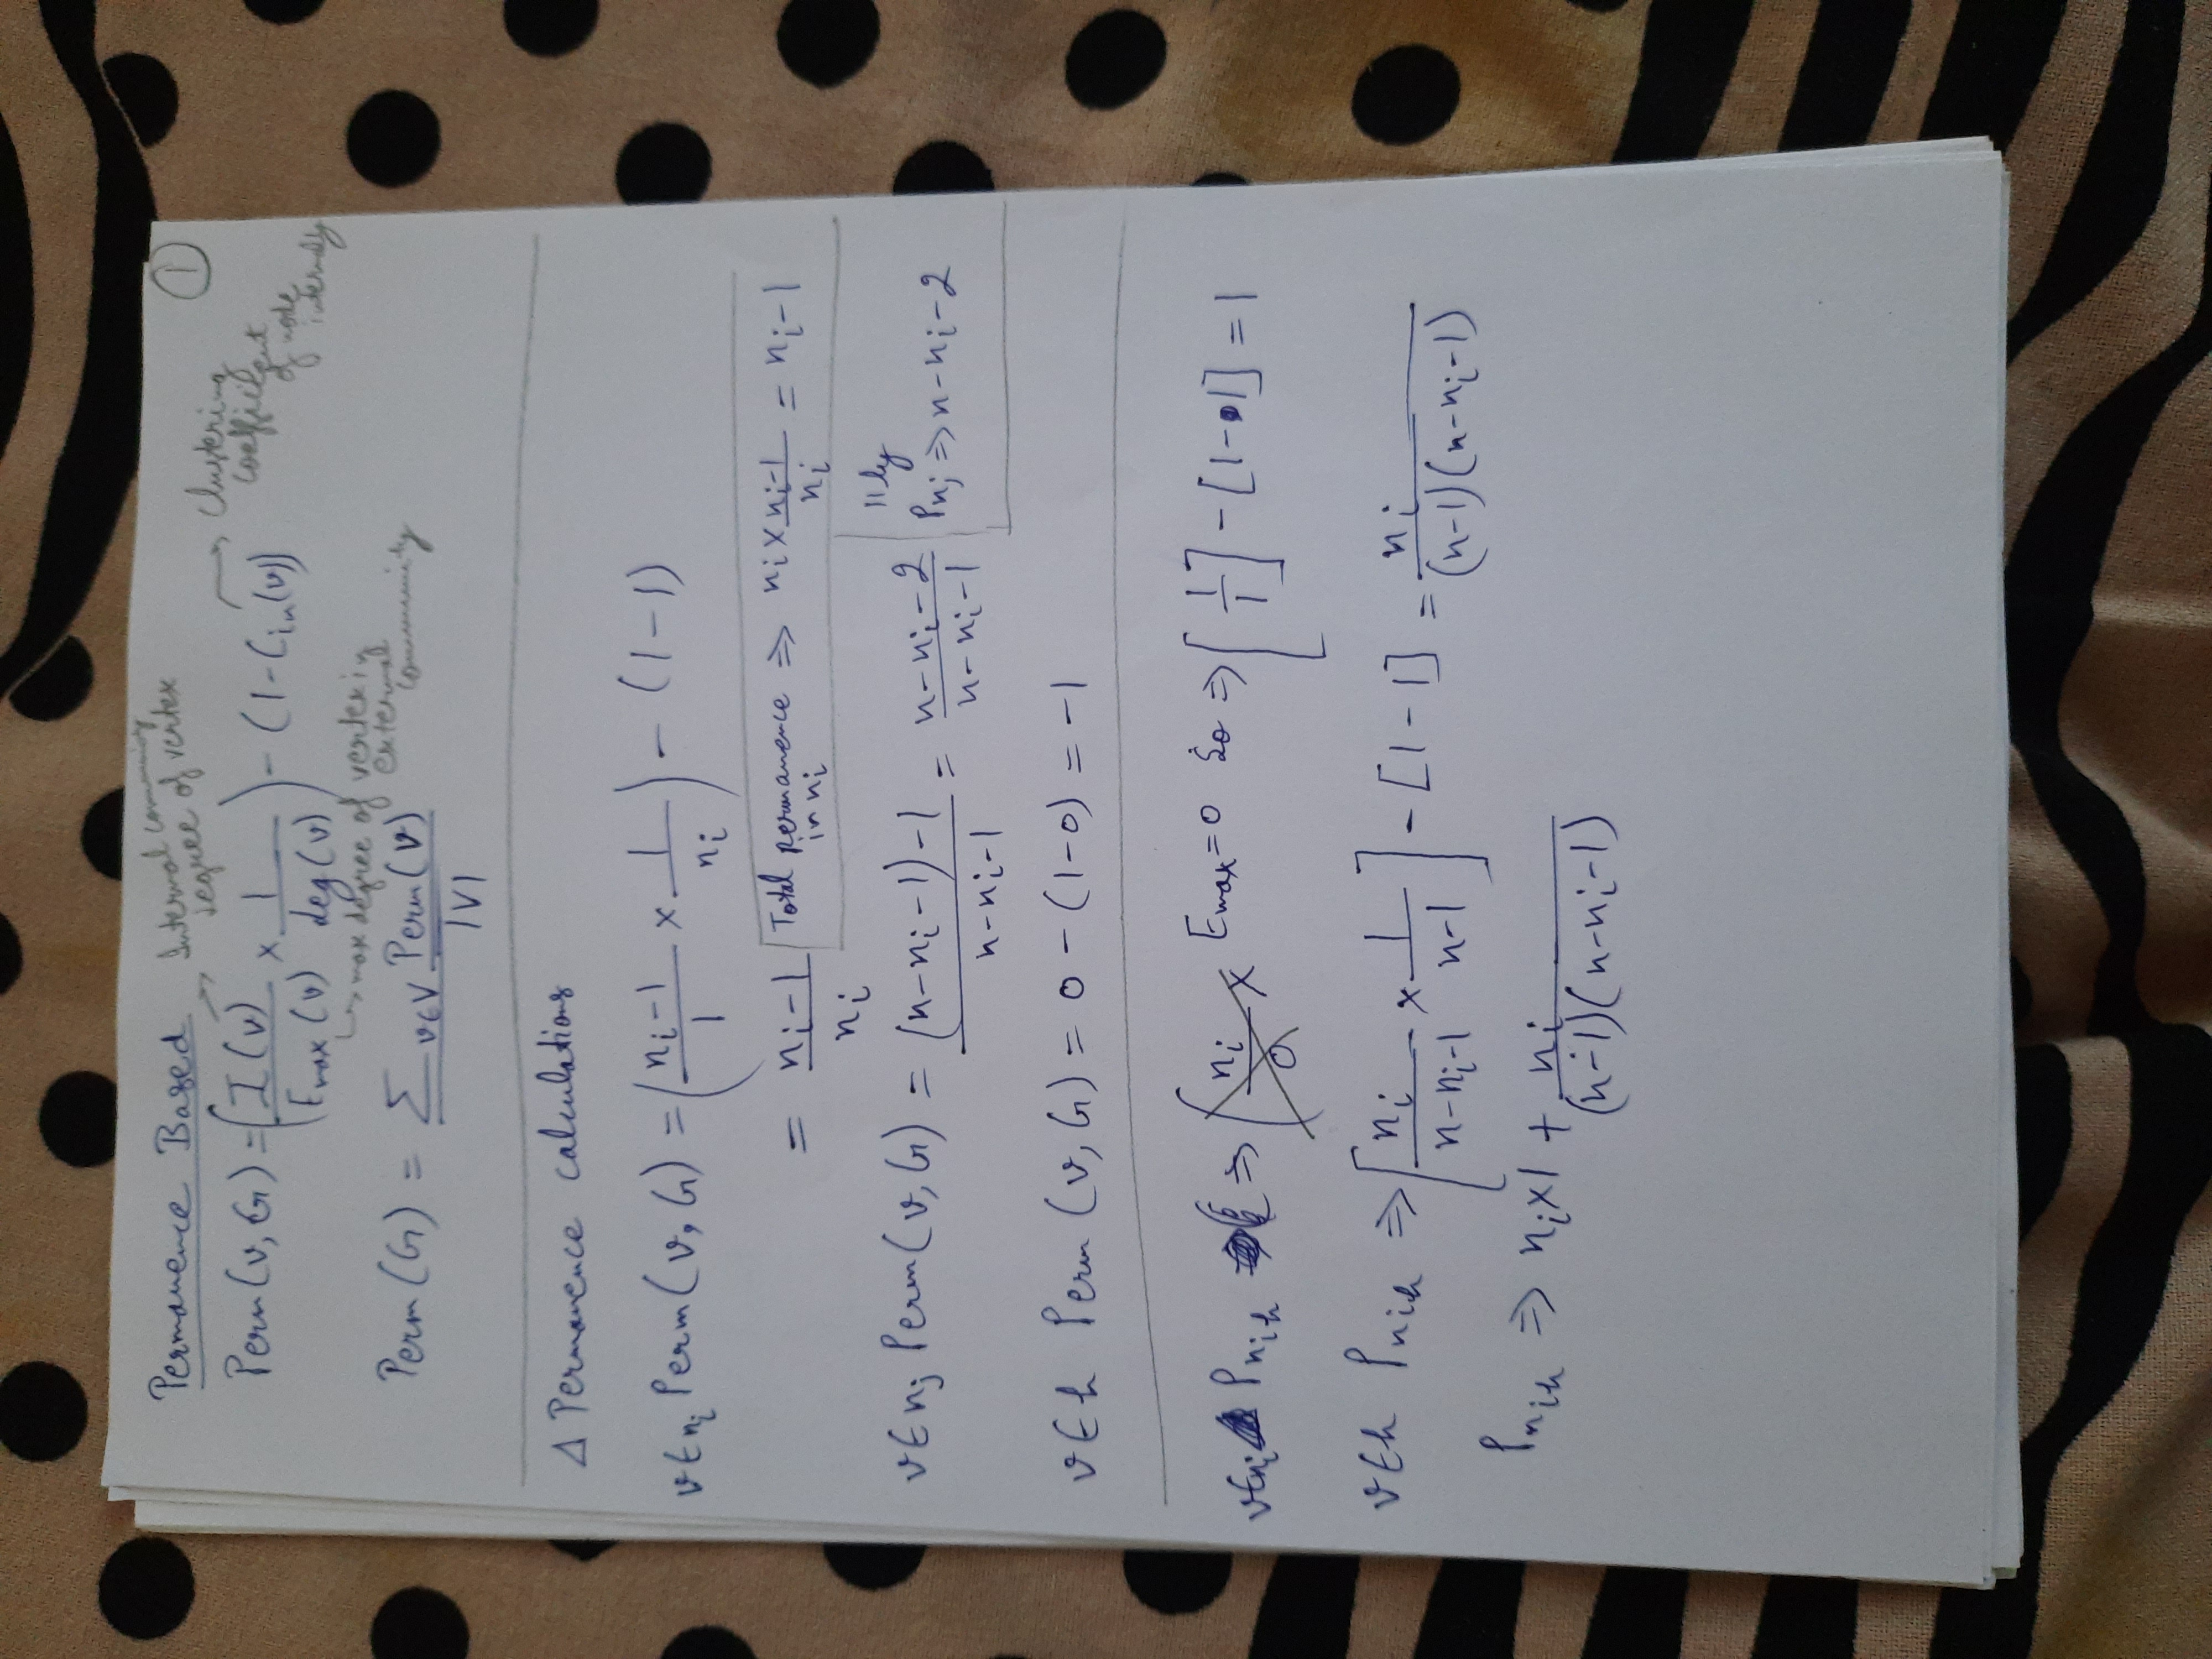 Permanence Based
Internal community
degree of vertex
①
Perm(v, G) = (I(v)/Emax(v) × 1/deg(v)) - (1 - Cin(v))
Clustering
coefficient
of node
internally
↳ max degree of vertex in
external
community
Perm(G) = Σ v∈V Perm(v) / |V|
Δ Permanence calculations
v∈ni Perm(v, G) = (ni-1/1 × 1/ni) - (1-1)
= ni-1/ni
Total permanence in ni ⇒ ni × ni-1/ni = ni-1
v∈nj Perm(v, G) = (n-ni-1)-1/n-ni-1 = n-ni-2/n-ni-1
||ly
Pnj ⇒ n-ni-2
v∈h Perm(v, G) = 0 - (1-0) = -1
v∈ni Pnih ⇒ (ni/0 × Emax=0 So ⇒ [1/1] - [1-1] = 1
v∈h Pnih ⇒ [ni/n-ni-1 × 1/n-1] - [1-1] = ni/(n-1)(n-ni-1)
Pnih ⇒ ni×1 + ni/(n-1)(n-ni-1)